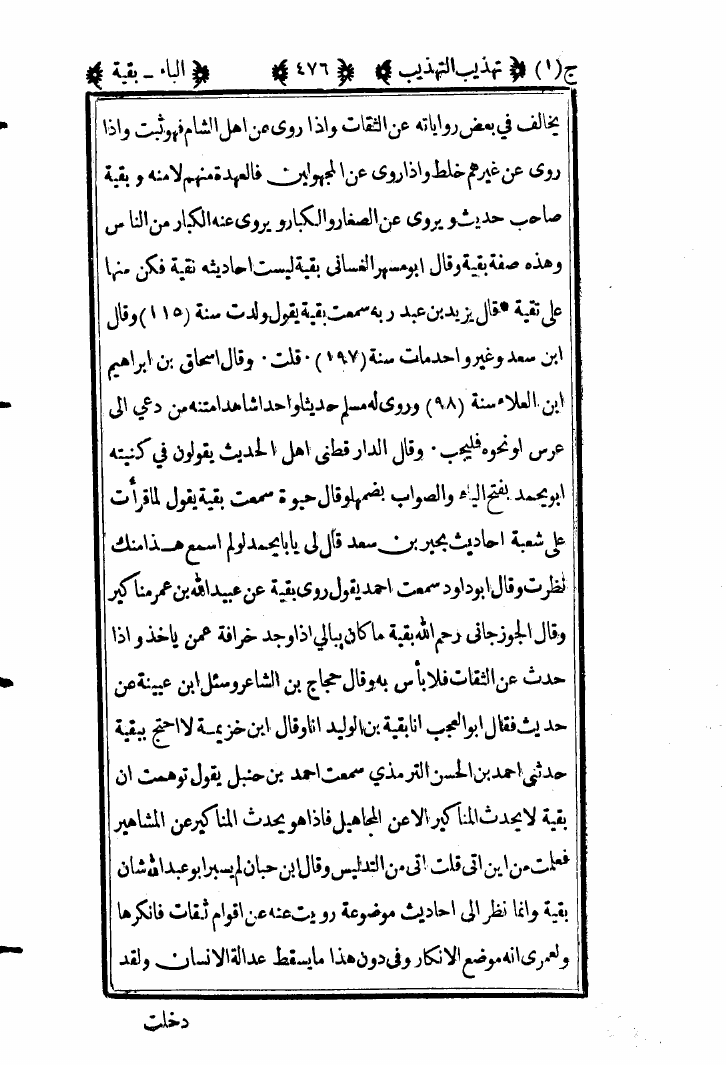 ج(١) ﴿ تهذيب التهذيب ﴾ ﴿ ٤٧٦ ﴾ ﴿ الباء - بقية ﴾
يخالف في بعض رواياته عن الثقات واذا روى عن اهل الشام فهو ثبت واذا
روى عن غيرهم خلط واذا روى عن المجهولين فالعهدة منهم لامنه و بقية
صاحب حديث و يروى عن الصغار والكبار و يروى عنه الكبار من الناس
وهذه صفة بقية وقال ابو مسهر الغسانى بقية ليست احاديثه نقية فكن منها
على تقية * قال يزيد بن عبد ربه سمعت بقية يقول ولدت سنة (١١٥) وقال
ابن سعد وغير واحد مات سنة (١٩٧) ٠ قلت ٠ وقال اسحاق بن ابراهيم
ابن العلاء سنة (٩٨) وروى له مسلم حديثا واحدا شاهدا متنه من دعي الى
عرس او نحوه فليجب ٠ وقال الدار قطنى اهل الحديث يقولون في كنيته
ابو يحمد بفتح الياء والصواب بضمها وقال حيوة سمعت بقية يقول لما قرأت
على شعبة احاديث بحير بن سعد قال لى يا ابا يحمد لولم اسمع هذا منك
لطرت وقال ابو داود سمعت احمد يقول روى بقية عن عبيد الله بن عمر مناكير
وقال الجوزجانى رحم الله بقية ما كان يبالي اذا وجد خرافة عمن ياخذ و اذا
حدث عن الثقات فلا بأس به وقال حجاج بن الشاعر وسئل ابن عيينة عن
حديث فقال ابو العجب انا بقية بن الوليد انا وقال ابن خزيمة لا احتج ببقية
حدثنى احمد بن الحسن الترمذي سمعت احمد بن حنبل يقول توهمت ان
بقية لا يحدث المناكير الا عن المجاهيل فاذا هو يحدث المناكير عن المشاهير
فعلمت من اين اتى قلت اتى من التدليس وقال ابن حبان لم يسبر ابو عبد الله شان
بقية وانما نظر الى احاديث موضوعة رويت عنه عن اقوام ثقات فانكرها
ولعمرى انه موضع الانكار وفى دون هذا ما يسقط عدالة الانسان ولقد
دخلت